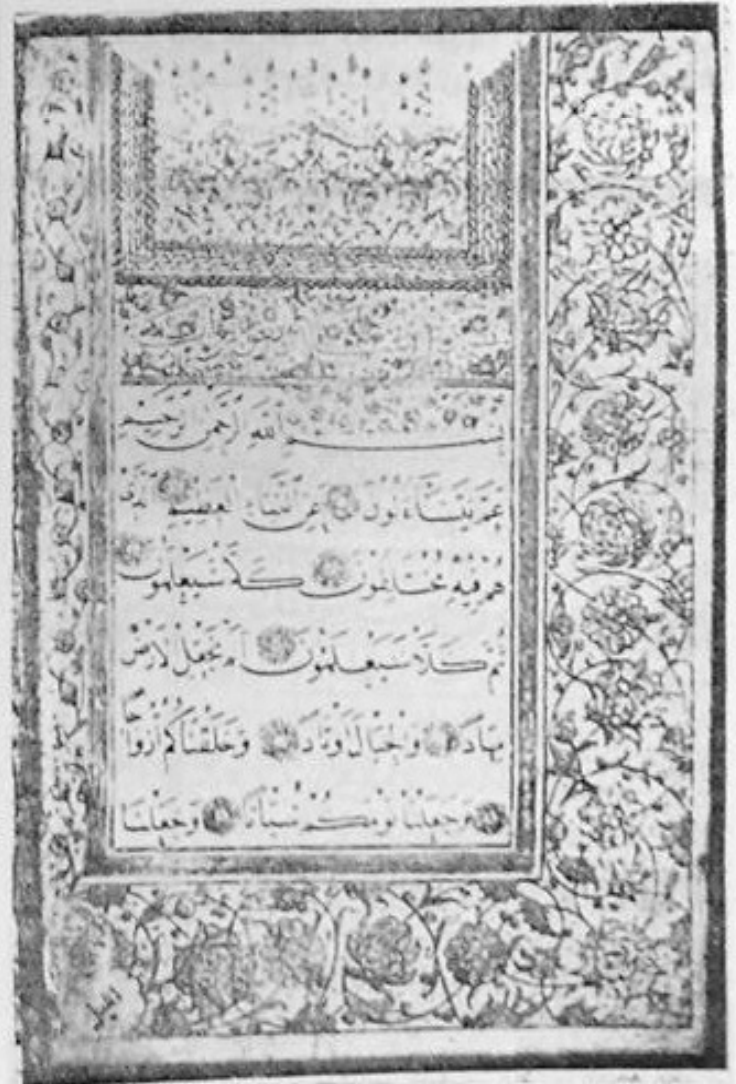 بسم الله الرحمن الرحيم
عم يتساءلون عن النبإ العظيم الذي
هم فيه مختلفون كلا سيعلمون
ثم كلا سيعلمون ألم نجعل الأرض
مهادا والجبال أوتادا وخلقناكم أزواجا
وجعلنا نومكم سباتا وجعلنا
الليل